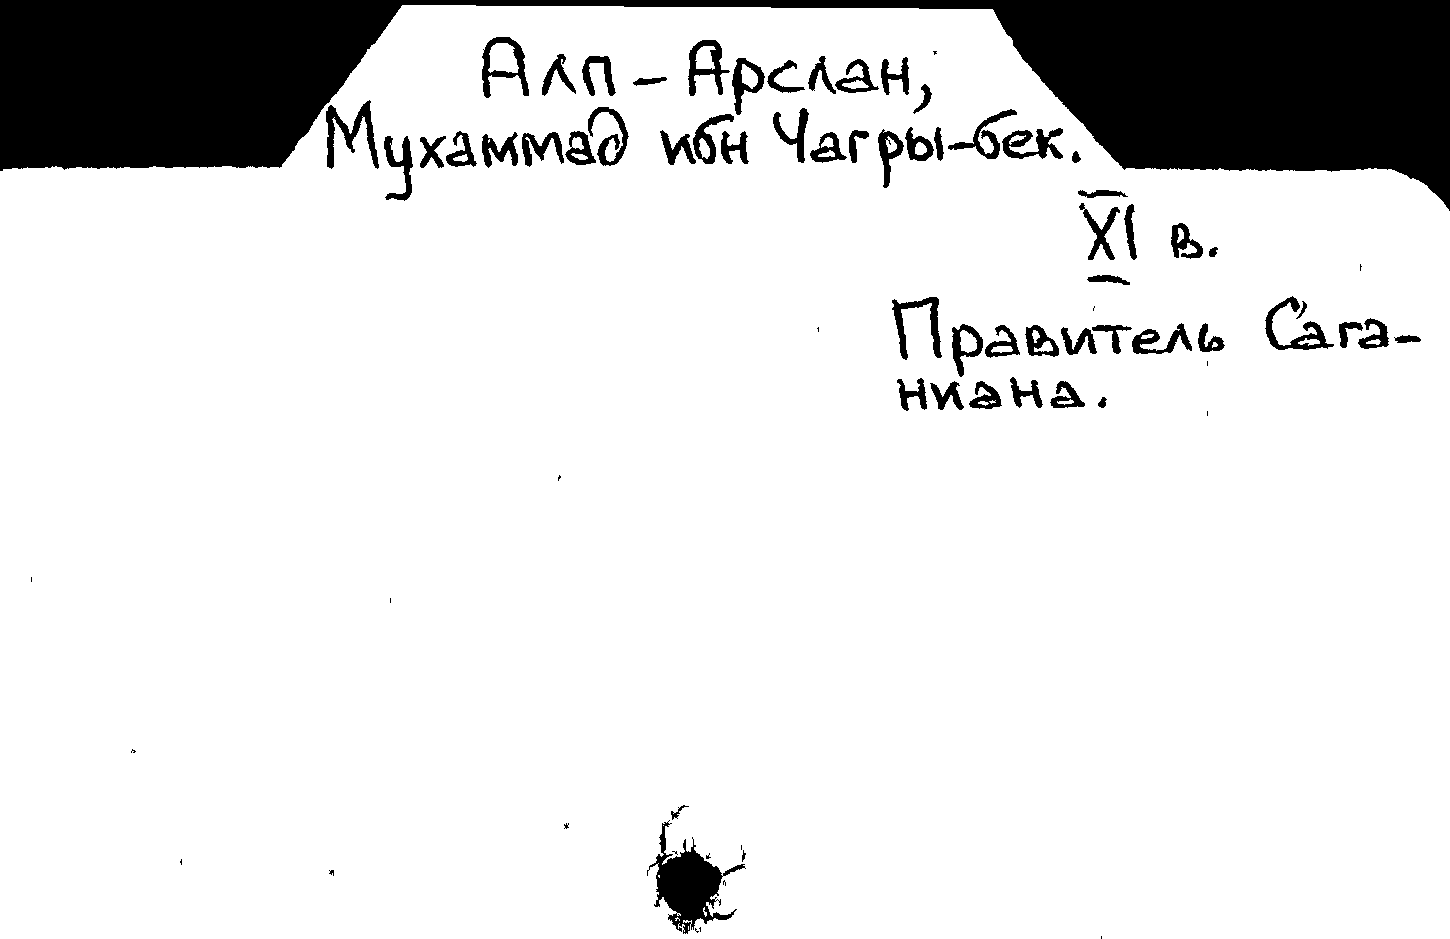 Алп-Арслан,
Мухаммад ибн Чагры-бек.
XI в.
Правитель Сага-
ниана.